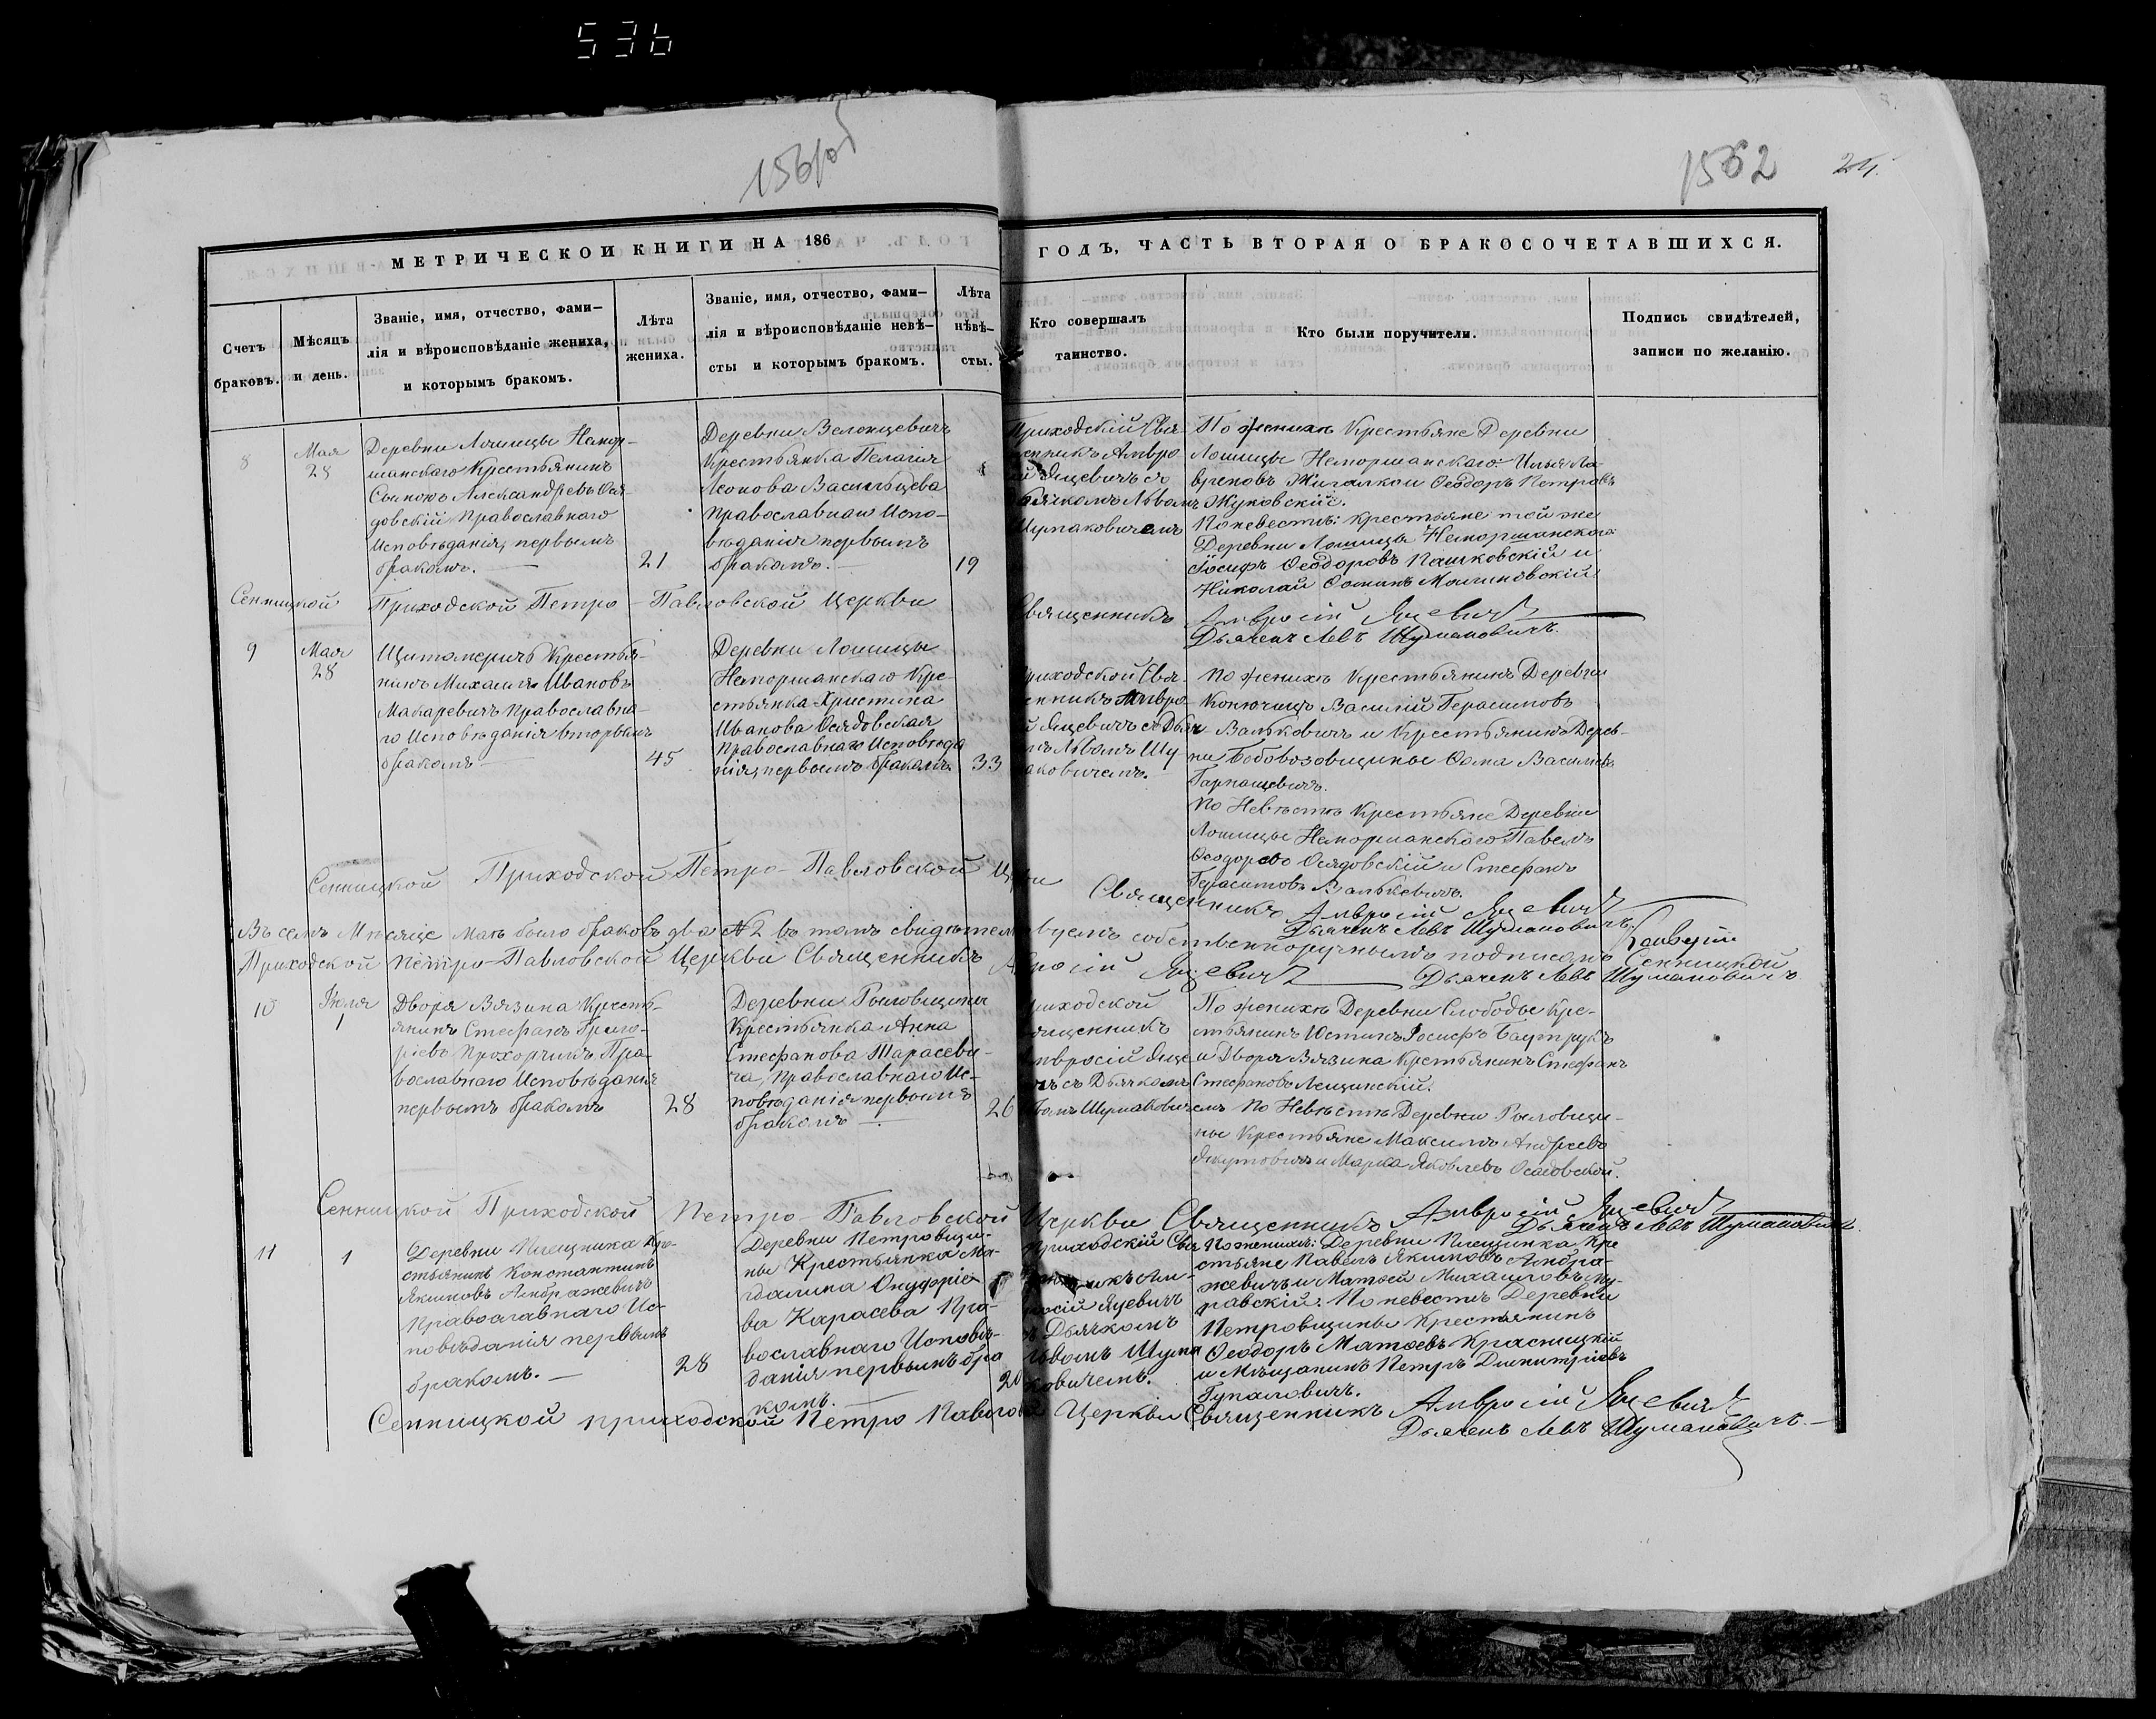 536
156 об
1562
24.
МЕТРИЧЕСКОИ КНИГИ НА 186
ГОДЪ, ЧАСТЬ ВТОРАЯ О БРАКОСОЧЕТАВШИХСЯ.
Счетъ
браковъ.
Мѣсяцъ
и день.
Званіе, имя, отчество, фами-
лія и вѣроисповѣданіе жениха,
и которымъ бракомъ.
Лѣта
жениха.
Званіе, имя, отчество, фами-
лія и вѣроисповѣданіе невѣ-
сты и которымъ бракомъ.
Лѣта
нѣвѣ-
сты.
Кто совершалъ
таинство.
Кто были поручители.
Подпись свидѣтелей,
записи по желанію.
8
Мая
28
Деревни Лошицы
Крестьянинъ
Александровъ Ося-
довскій Православнаго
Исповѣданія, первымъ
бракомъ.
21
Деревни
Крестьянка Пелагія
Леонова Васильцева
Православнаго Испо-
вѣданія первымъ
бракомъ.
19
Приходскій Свя-
щенникъ Амвро
й Яцевичъ съ
Дьячкомъ Львомъ
Шумаковичемъ
По женихѣ Крестьяне Деревни
Лошицы Неморшанскаго Илья Ла-
вреновъ Жигалкои Ѳеодоръ Петровъ
Жуковскій.
По невестѣ: крестьяне той же
Деревни Лошицы Неморшанскаго
Іосифъ Ѳеодоровъ Пашковскій и
Николай Ѳоминъ Малиновскій
Сенницкой Приходской Петро-Павловской Церкви Священникъ Амвросій Яцевичъ
Дьячекъ Левъ Шумаковичъ.
9
Мая
28
Крестья-
нинъ Михаилъ Ивановъ
Макаревичъ Православна-
го Исповѣданія вторымъ
бракомъ
45
Деревни Лошицы
Неморшанскаго Кре-
стьянка Христина
Иванова Осядовская
Православнаго Исповѣда
нія, первымъ бракомъ
33
риходской Свя-
щенникъ Амвро-
й Яцевичъ съ Дьяч
мъ Львомъ Шу
маковичемъ.
По женихѣ Крестьянинъ Деревни
Конючицъ Василій Герасимовъ
Вальковичъ и Крестьянинъ Дерев-
ни Бобовозовщины Ѳома Васильевъ
Гарпашевичъ.
По Невѣстѣ Крестьяне Деревни
Лошицы Неморшанскаго Павелъ
Ѳеодоровъ Осядовскій и Стефанъ
Герасимовъ Валькевичъ.
Сенницкой Приходской Петро-Павловской Церкви Священникъ Амвросій Яцевичъ
Дьячекъ Левъ Шумаковичъ.
Въ семъ Мѣсяце Маѣ было браковъ два № 2 въ томъ свидѣтельствуемъ собственноручнымъ подписомъ Сенницкой
Приходской Петро-Павловской Церкви Священникъ Амвросій Яцевичъ Дьячекъ Левъ Шумаковичъ
10
Іюля
1
Двора Вязина Кресть-
янинъ Стефанъ Григо-
ріевъ Прохорчикъ Пра-
вославнаго Исповѣданія
первымъ бракомъ
28
Деревни Рыловщины
Крестьянка Анна
Стефанова Тарасеви-
ча, Православнаго Ис-
повѣданія первымъ
бракомъ
26
Приходской
Священникъ
Амвросій Яце
вичъ съ Дьячкомъ
Львомъ Шумаковичемъ
По женихѣ Деревни Слободы Кре-
стьянинъ Іосифъ Баутрукъ
и Двора Вязина Крестьянинъ Стефанъ
Стефановъ Лещинскій.
По Невѣстѣ Деревни Рыловщи-
ны Крестьяне Максимъ Андреевъ
Якутовичъ и Марка Яковлевъ Осядовской.
Сенницкой Приходской Петро-Павловской Церкви Священникъ Амвросій Яцевичъ
Дьячекъ Левъ Шумаковичъ.
11
1
Деревни Плещника Кре-
стьянинъ Константинъ
Якимовъ Амбражевичъ
Православнаго Ис-
повѣданія первымъ
бракомъ.
28
Деревни Петровщи-
ны Крестьянка Ма-
гдалина Онуфріе
ва Карасева Пра-
вославнаго Исповѣ-
данія первымъ бра
комъ.
20
Приходскій Свя
щенникъ Ам-
вросій Яцевичъ
съ Дьячкомъ
Львомъ Шума
ковичемъ.
По женихѣ: Деревни Плещинка Кре
стьяне Павелъ Якимовъ Амбра-
жевичъ и Матѳей Михаиловъ Му-
равскій. По невестѣ Деревни
Петровщины Крестьянинъ
Ѳеодоръ Матѳеевъ Красницкій
и Мещанинъ Петръ Димитріевъ
Гупаловичъ.
Сенницкой приходской Петро Павловской Церкви Священникъ Амвросій Яцевичъ
Дьячекъ Левъ Шумаковичъ.